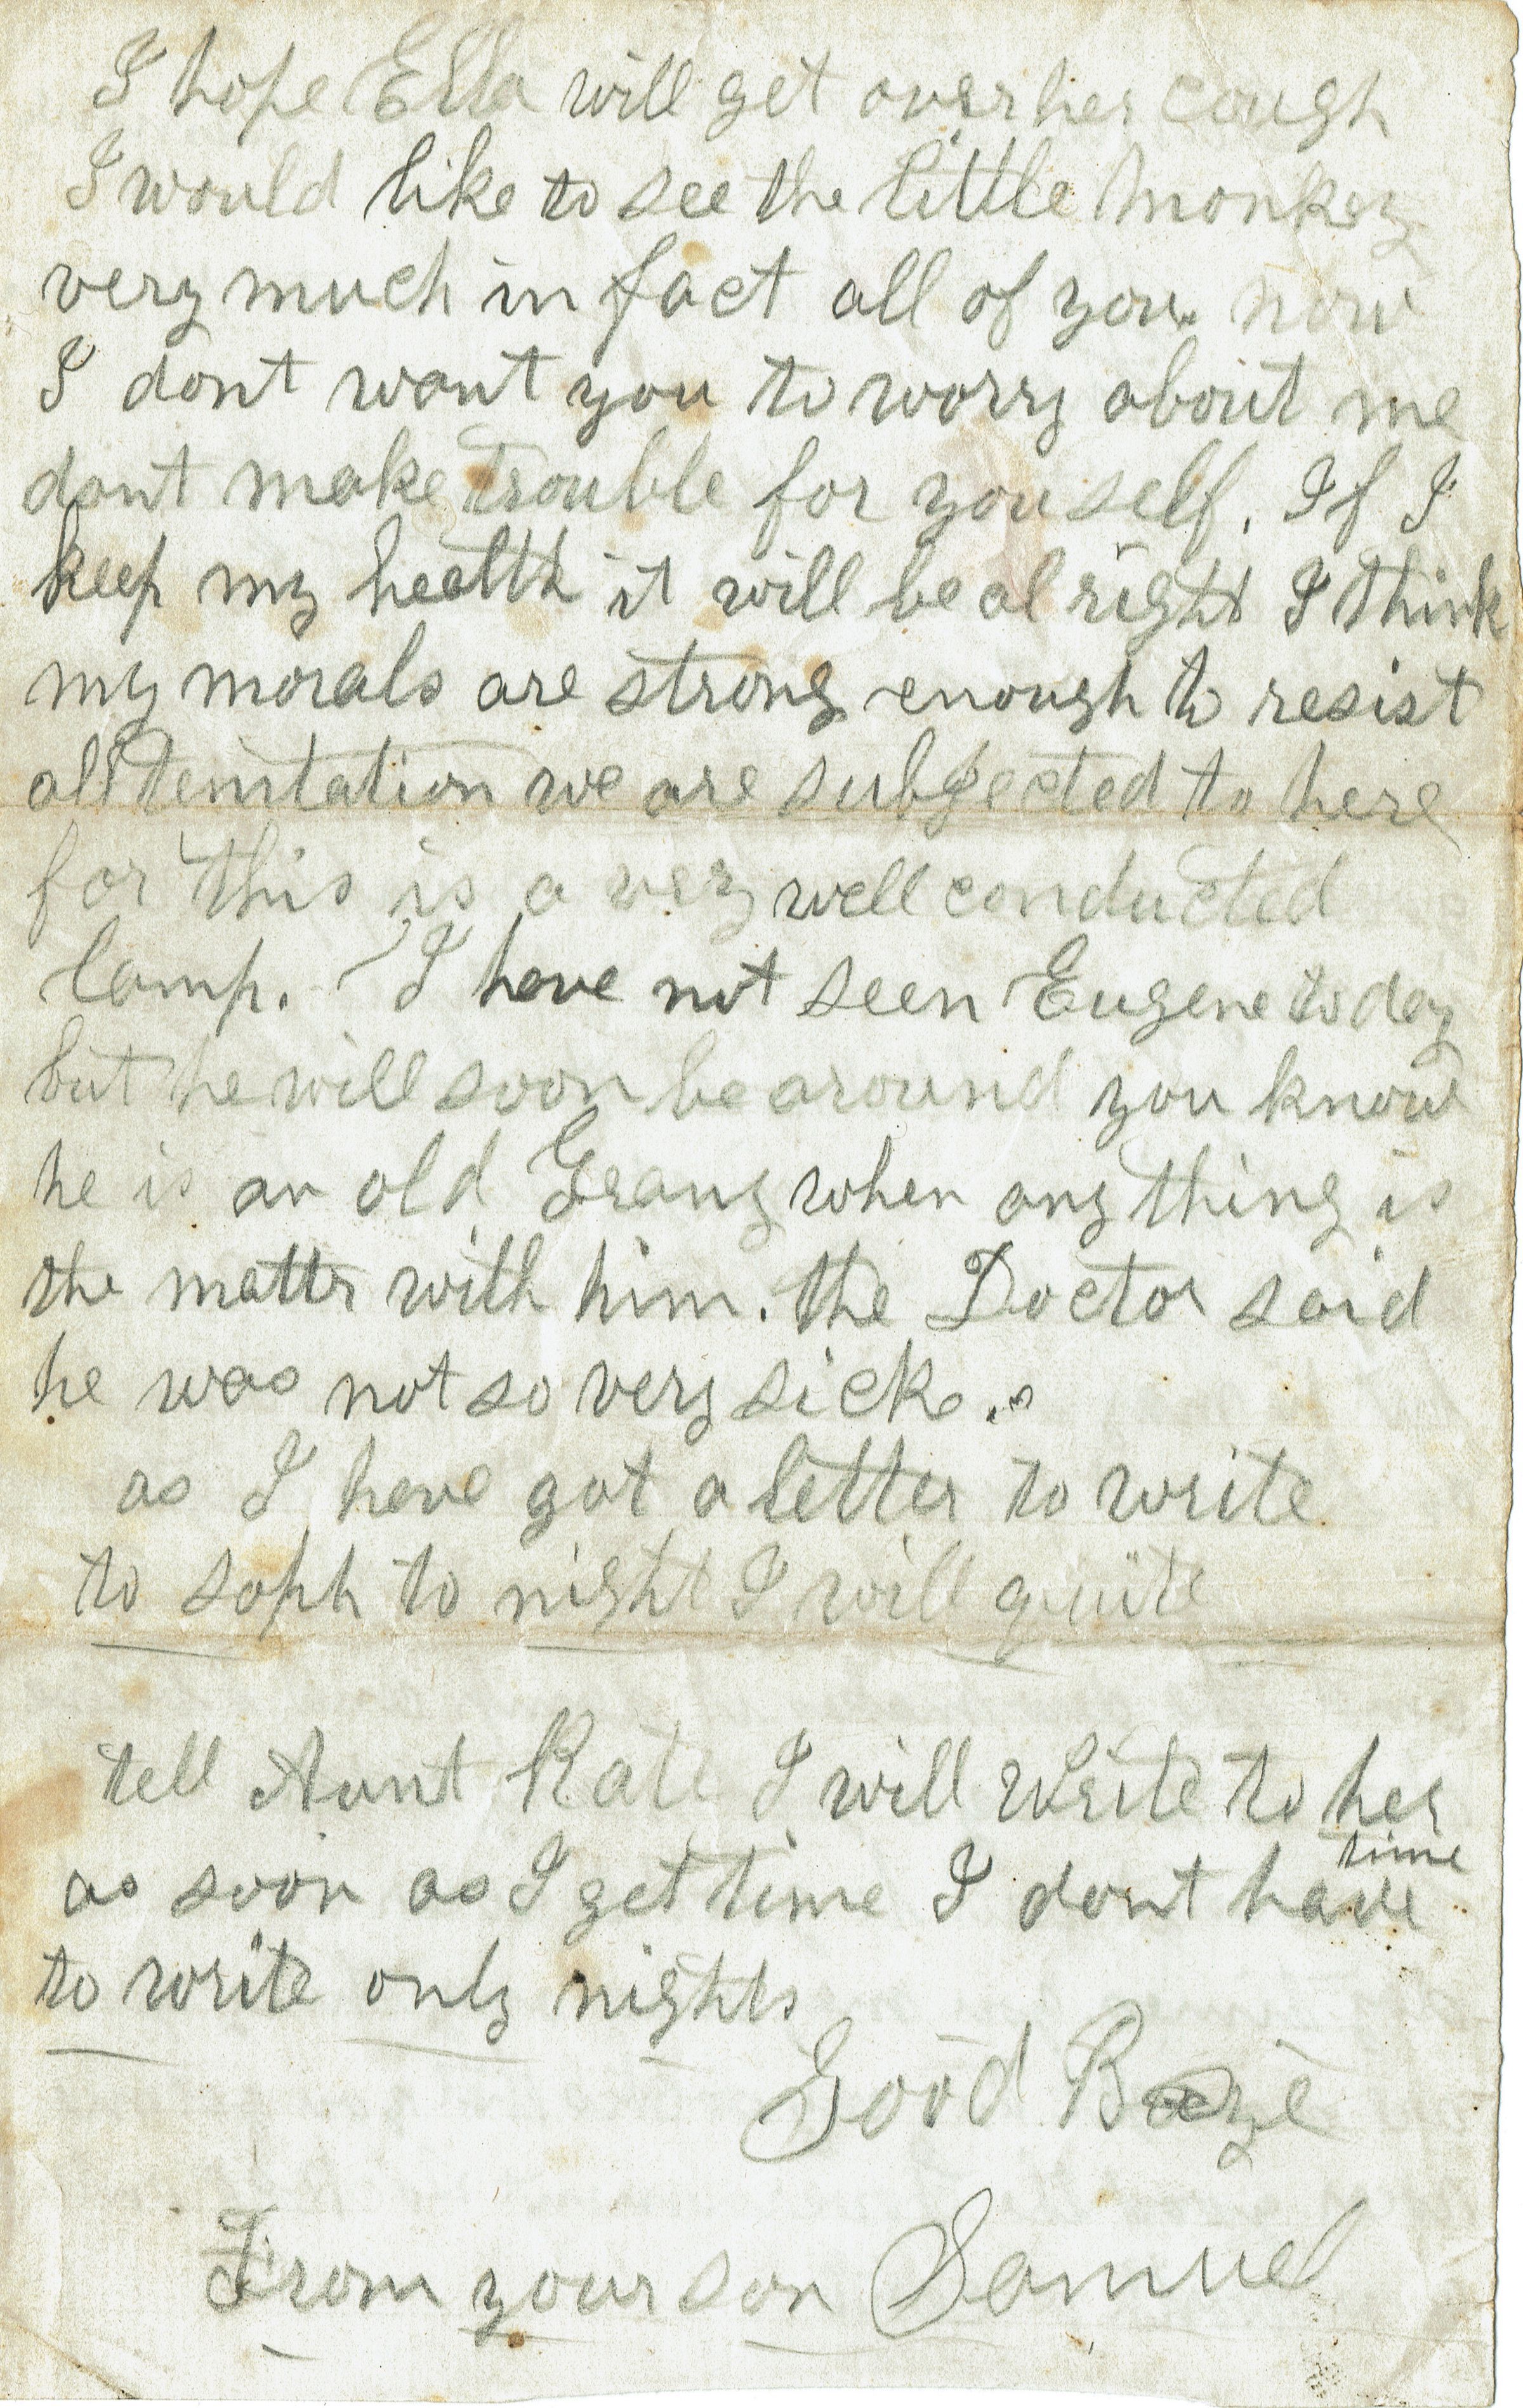 I hope Ella will get over her cough
I would like to see the little monkey
very much in fact all of you. now
I dont want you to worry about me
dont make trouble for you self. If I
keep my health it will be al right I think
my morals are strong enough to resist
all temtation we are subjected to here
for this is a very well conducted
Camp. I have not seen Eugene to day
but he will soon be around you know
he is an old Grany when any thing is
the matter with him. the Doctor said
he was not so very sick.
as I have got a letter to write
to soph to night I will quite
tell Aunt Kate I will write to her
as soon as I get time I dont have time
to write only nights
Good Bye
From your son Samuel